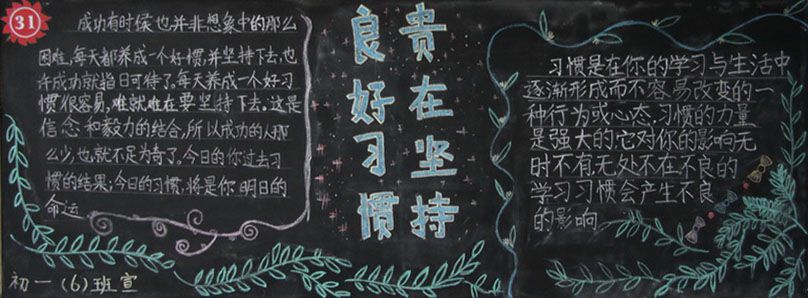 31
成功有时候也并非想象中的那么
困难,每天都养成一个好惯,并坚持下去,也
许成功就指日可待了。每天养成一个好习
惯很容易,难就难在要坚持下去。这是
信念和毅力的结合,所以成功的人那
么少,也就不足为奇了。今日的你过去习
惯的结果;今日的习惯,将是你明日的
命运
初一(6)班宣
良好习惯
贵在坚持
习惯是在你的学习与生活中
逐渐形成而不容易改变的一
种行为或心态.习惯的力量
是强大的,它对你的影响无
时不有,无处不在不良的
学习习惯会产生不良
的影响